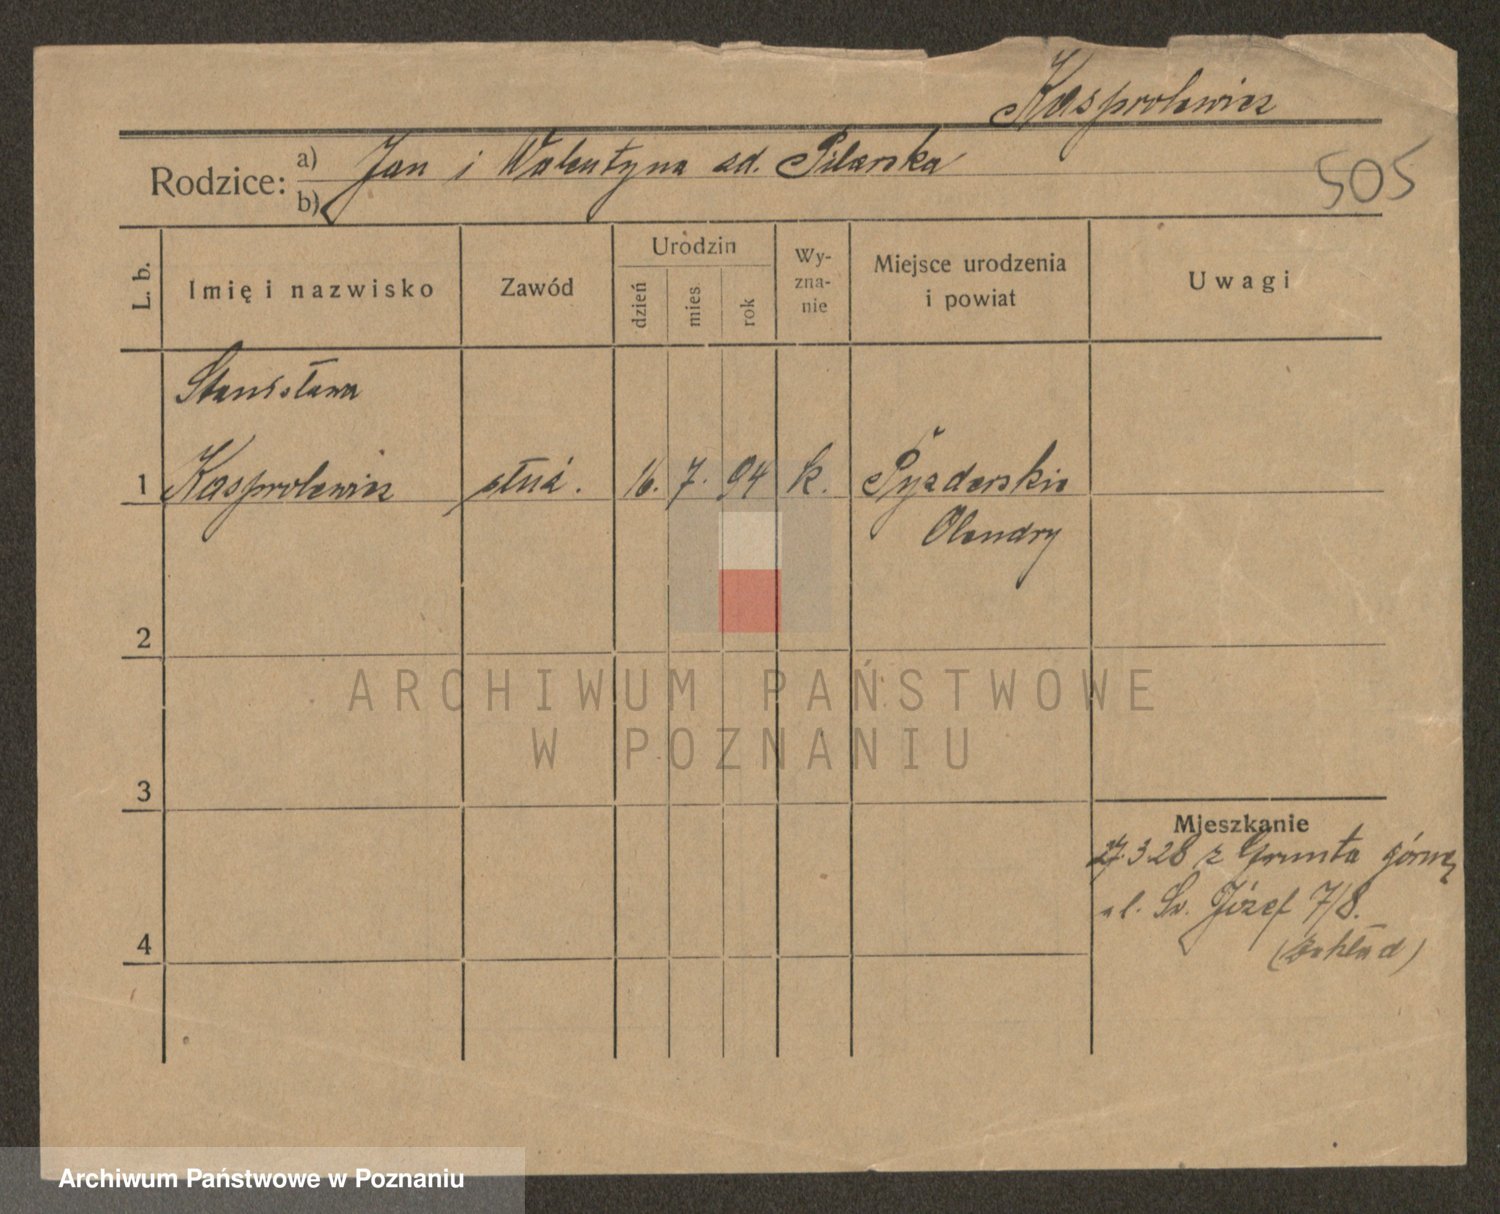 Kasprolewicz
505
Rodzice: a) Jan i Walentyna zd. Pilarska
b)
L. b. Imię i nazwisko Zawód Urodzin dzień mies rok Wyznanie Miejsce urodzenia i powiat Uwagi
Stanisława
1 Kasprolewicz służ. 16. 7. 94 k. Pyzderskie
Olendry
2
3
Mieszkanie
27.3.28 z Grunta górne
ul. Św. Józef 7/8.
(Zakład)
4
ARCHIWUM PAŃSTWOWE
W POZNANIU
Archiwum Państwowe w Poznaniu